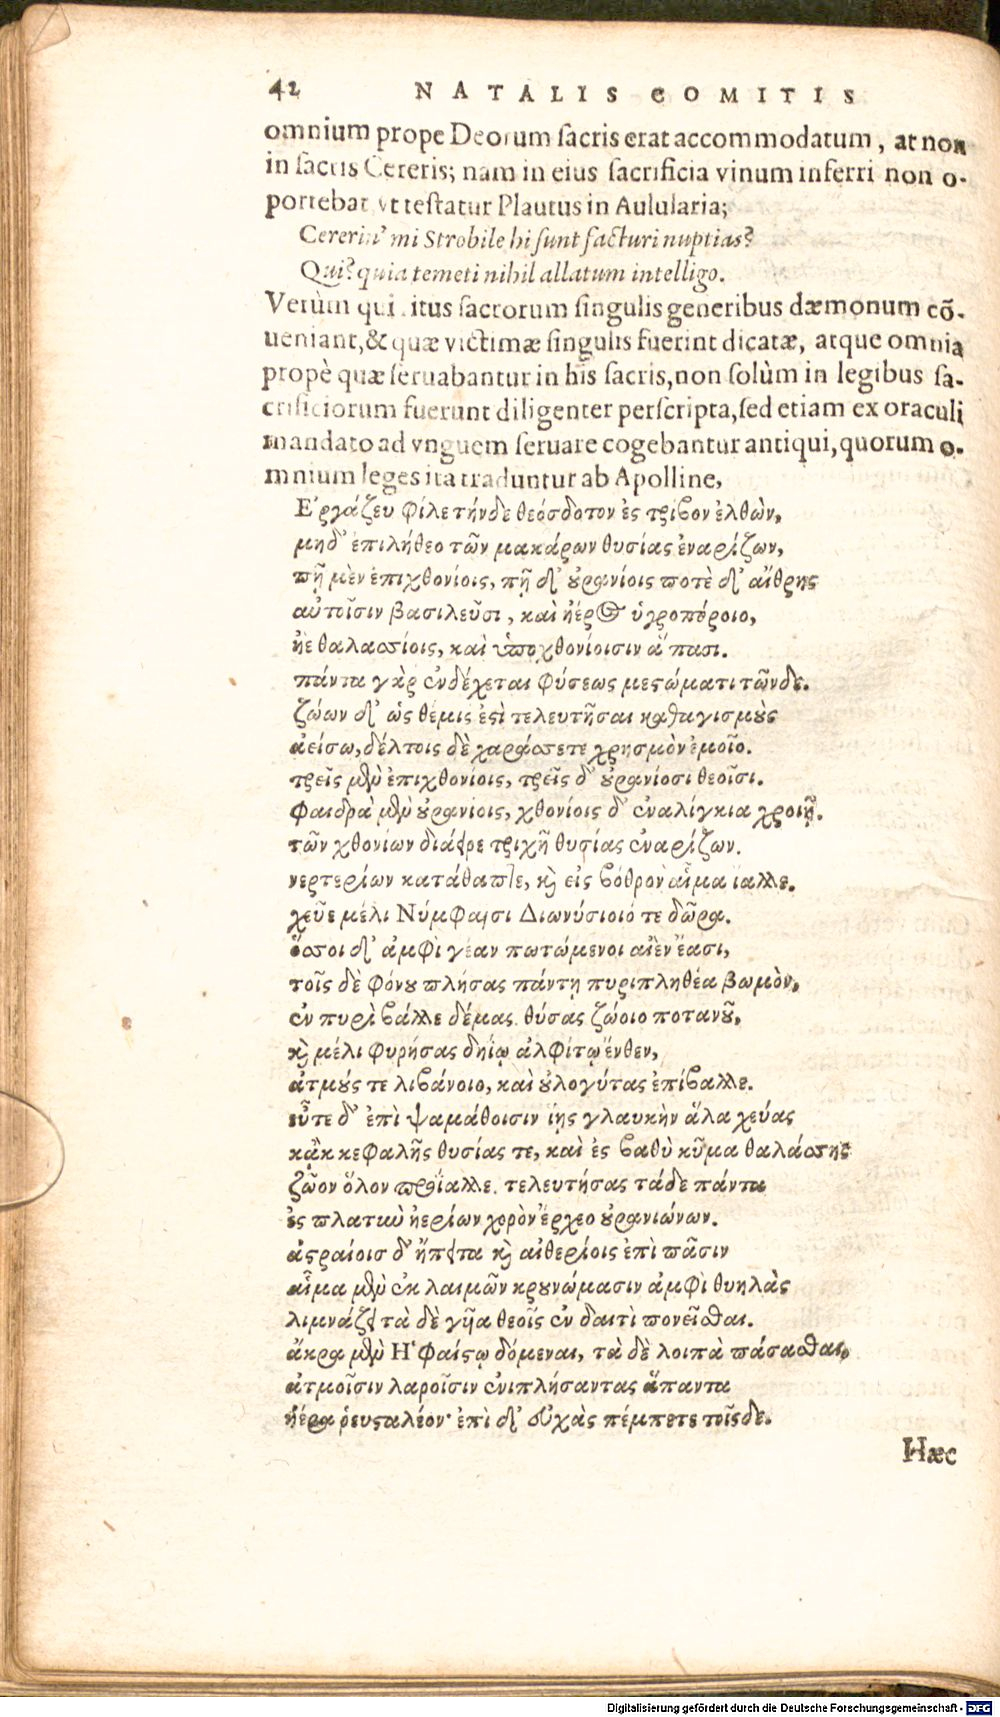 42 NATALIS COMITIS
omnium prope Deorum sacris erat accommodatum, at non
in sacris Cereris; nam in eius sacrificia vinum inferri non o-
portebat vt testatur Plautus in Aulularia;
Cererin' mi Strobile hi sunt facturi nuptias?
Qui? quia temeti nihil allatum intelligo.
Verùm qui ritus sacrorum singulis generibus dæmonum cō-
ueniant, & quæ victimæ singulis fuerint dicatæ, atque omnia
propè quæ seruabantur in his sacris, non solùm in legibus sa-
crificiorum fuerunt diligenter perscripta, sed etiam ex oraculi
mandato ad vnguem seruare cogebantur antiqui, quorum o-
mnium leges ita traduntur ab Apolline,
Ἐργάζευ φίλε τήνδε θεόσδοτον ἐς τρίβον ἐλθὼν,
μηδ' ἐπιλήθεο τῶν μακάρων θυσίας ἐναρίζων,
πῇ μὲν ἐπιχθονίοις, πῇ δ' οὐρανίοις ποτὲ δ' αἴθρης
αὐτοῖσιν βασιλεῦσι, καὶ ἠέρος ὑγροπόροιο,
ἠὲ θαλασσίοις, καὶ ὑποχθονίοισιν ἅπασι.
πάντα γὰρ ἐνδέχεται φύσεως μεστώματι τῶνδε.
ζώων δ' ὡς θέμις ἐστὶ τελευτῆσαι καθαγισμοὺς
ἀείσω, δέλτοις δὲ χαράσσετε χρησμὸν ἐμοῖο.
τρεῖς μὲν ἐπιχθονίοις, τρεῖς δ' οὐρανίοσι θεοῖσι.
φαιδρὰ μὲν οὐρανίοις, χθονίοις δ' ἐναλίγκια χροιῇ.
τῶν χθονίων διάειρε τριχῆ θυσίας ἐναρίζων.
νερτερίων κατάθαπτε, καὶ εἰς βόθρον αἷμα ἴαλλε.
χεῦε μέλι Νύμφαισι Διωνύσιοιό τε δῶρα.
ὅσσοι δ' ἀμφὶ γέαν πωτώμενοι αἰὲν ἔασι,
τοῖς δὲ φόνου πλήσας πάντη πυριπληθέα βωμὸν,
ἐν πυρὶ βάλλε δέμας θύσας ζώοιο ποτανοῦ,
καὶ μέλι φυρήσας δηίῳ ἀλφίτῳ ἔνθεν,
ἀτμούς τε λιβάνοιο, καὶ οὐλοχύτας ἐπίβαλλε.
εὖτε δ' ἐπὶ ψαμάθοισιν ἴῃς γλαυκὴν ἅλα χεύας
κἂκ κεφαλῆς θυσίας τε, καὶ ἐς βαθὺ κῦμα θαλάσσης
ζῶον ὅλον προΐαλλε. τελευτήσας τάδε πάντα
ἐς πλατὺν ἠερίων χορὸν ἔρχεο οὐρανιώνων.
ἀστραίοισ δ' ἤπειτα καὶ αἰθερίοις ἐπὶ πᾶσιν
αἷμα μὲν ἐκ λαιμῶν κρουνώμασιν ἀμφὶ θυηλὰς
λιμνάζει τὰ δὲ γῆα θεοῖς ἐν δαιτὶ πονεῖσθαι.
ἄκρα μὲν Ἡφαίστῳ δόμεναι, τὰ δὲ λοιπὰ πάσασθαι,
ἀτμοῖσιν λαροῖσιν ἐνιπλήσαντας ἅπαντα
ἠέρα ῥευσταλέον· ἐπὶ δ' εὐχὰς πέμπετε τοῖσδε.
Hæc
Digitalisierung gefördert durch die Deutsche Forschungsgemeinschaft - DFG